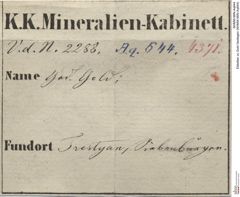 K.K. Mineralien-Kabinett.
V.d.N. 2288. Aq. 544. 4371.
Name Ged. Gold;
Fundort Trestyan, Siebenbürgen.